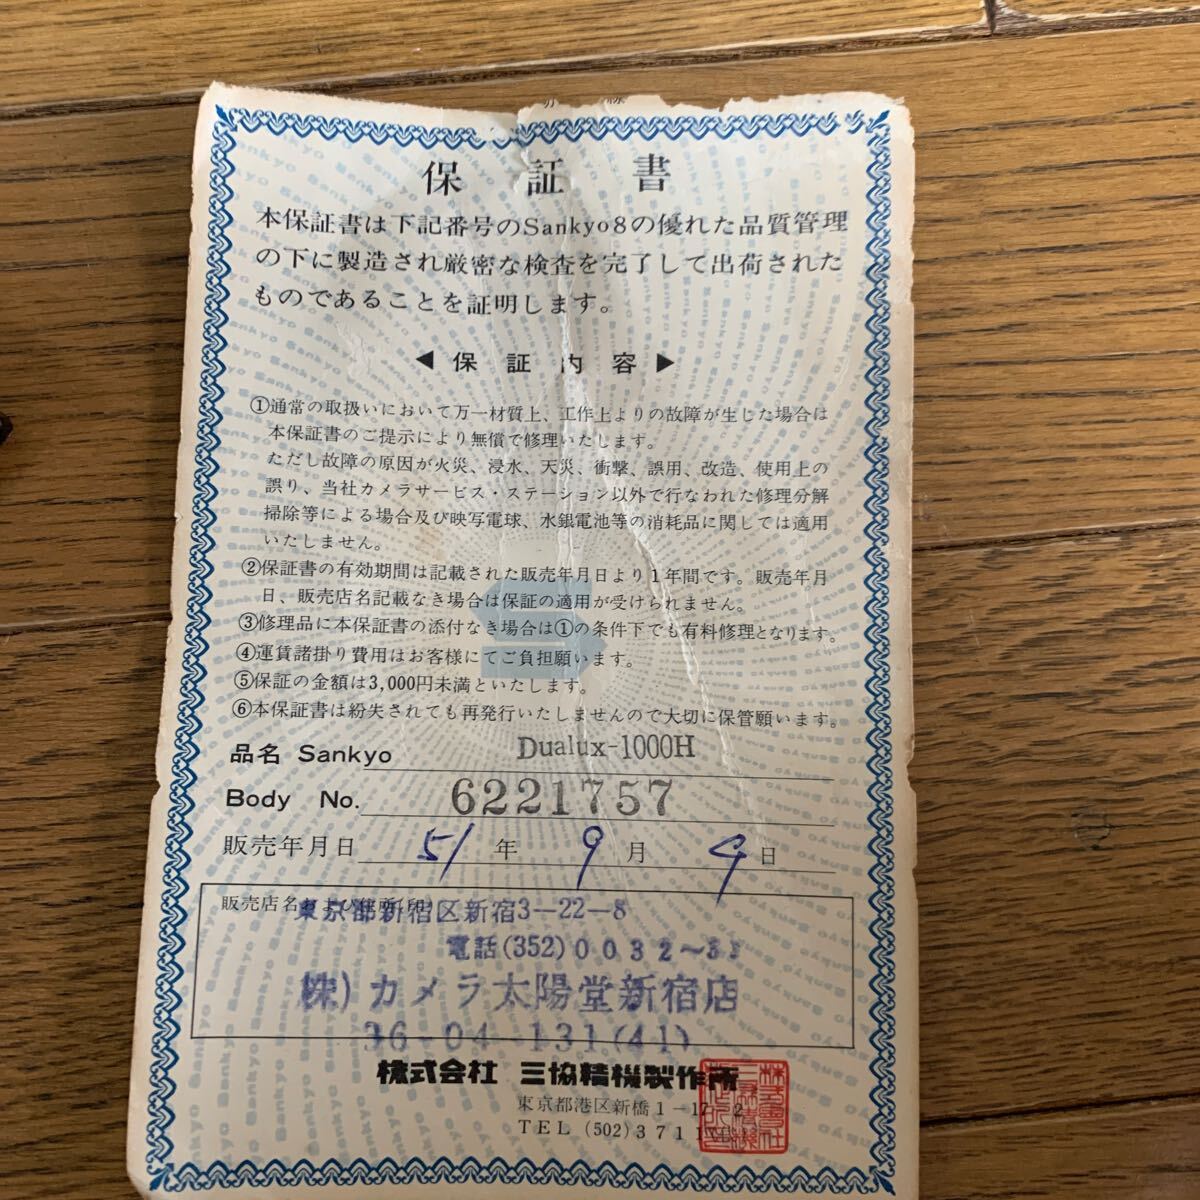 保証書
本保証書は下記番号のSankyo8の優れた品質管理
の下に製造され厳密な検査を完了して出荷された
ものであることを証明します。
◀ 保証内容 ▶
①通常の取扱いにおいて万一材質上、工作上よりの故障が生じた場合は
本保証書のご提示により無償で修理いたします。
ただし故障の原因が火災、浸水、天災、衝撃、誤用、改造、使用上の
誤り、当社カメラサービス・ステーション以外で行なわれた修理分解
掃除等による場合及び映写電球、水銀電池等の消耗品に関しては適用
いたしません。
②保証書の有効期間は記載された販売年月日より1年間です。販売年月
日、販売店名記載なき場合は保証の適用が受けられません。
③修理品に本保証書の添付なき場合は①の条件下でも有料修理となります。
④運賃諸掛り費用はお客様にてご負担願います。
⑤保証の金額は3,000円未満といたします。
⑥本保証書は紛失されても再発行いたしませんので大切に保管願います。
品名 Sankyo Dualux-1000H
Body No. 6221757
販売年月日 51年 9月 9日
販売店名および住所(印)
東京都新宿区新宿3-22-8
電話(352)0032~33
(株)カメラ太陽堂新宿店
36-04-131(41)
株式会社 三協精機製作所
東京都港区新橋1-17-2
TEL (502)3711